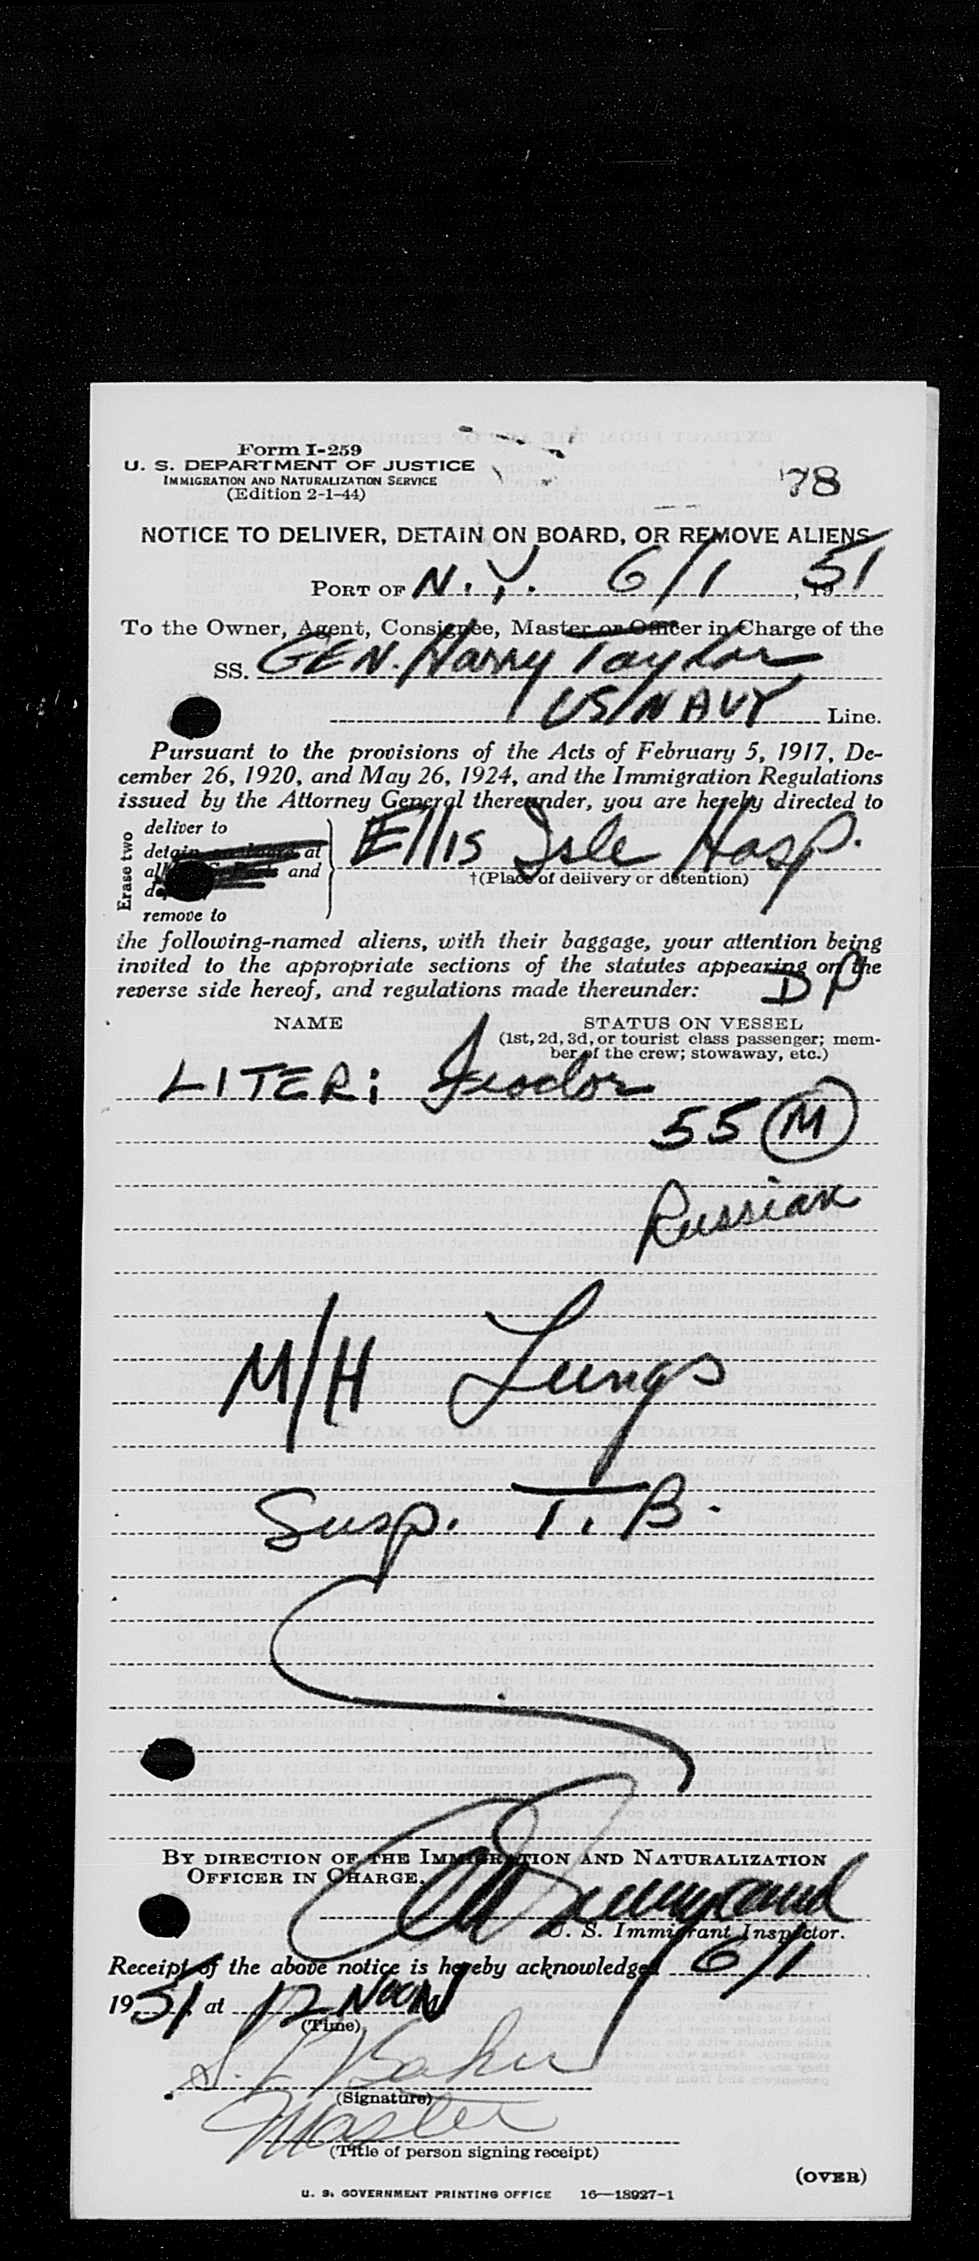 Form I-259
U. S. DEPARTMENT OF JUSTICE
IMMIGRATION AND NATURALIZATION SERVICE
(Edition 2-1-44)
78
NOTICE TO DELIVER, DETAIN ON BOARD, OR REMOVE ALIENS
PORT OF N.Y. 6/1, 1951
To the Owner, Agent, Consignee, Master or Officer in Charge of the
SS. GEN. Harry Taylor
US NAVY Line.
Pursuant to the provisions of the Acts of February 5, 1917, De-
cember 26, 1920, and May 26, 1924, and the Immigration Regulations
issued by the Attorney General thereunder, you are hereby directed to
Erase two
deliver to
detain on board at
and
remove to
Ellis Isle Hosp.
†(Place of delivery or detention)
the following-named aliens, with their baggage, your attention being
invited to the appropriate sections of the statutes appearing on the
reverse side hereof, and regulations made thereunder:
DP
NAME STATUS ON VESSEL
(1st, 2d, 3d, or tourist class passenger; mem-
ber of the crew; stowaway, etc.)
LITER; Feodor
55 M
Russian
M/H Lungs
Susp. T.B.
BY DIRECTION OF THE IMMIGRATION AND NATURALIZATION
OFFICER IN CHARGE.
U. S. Immigrant Inspector.
Receipt of the above notice is hereby acknowledged 6/1
1951 at 12 NOON M
(Time)
Baker
(Signature)
Master
(Title of person signing receipt)
(OVER)
U. S. GOVERNMENT PRINTING OFFICE 16—18927-1